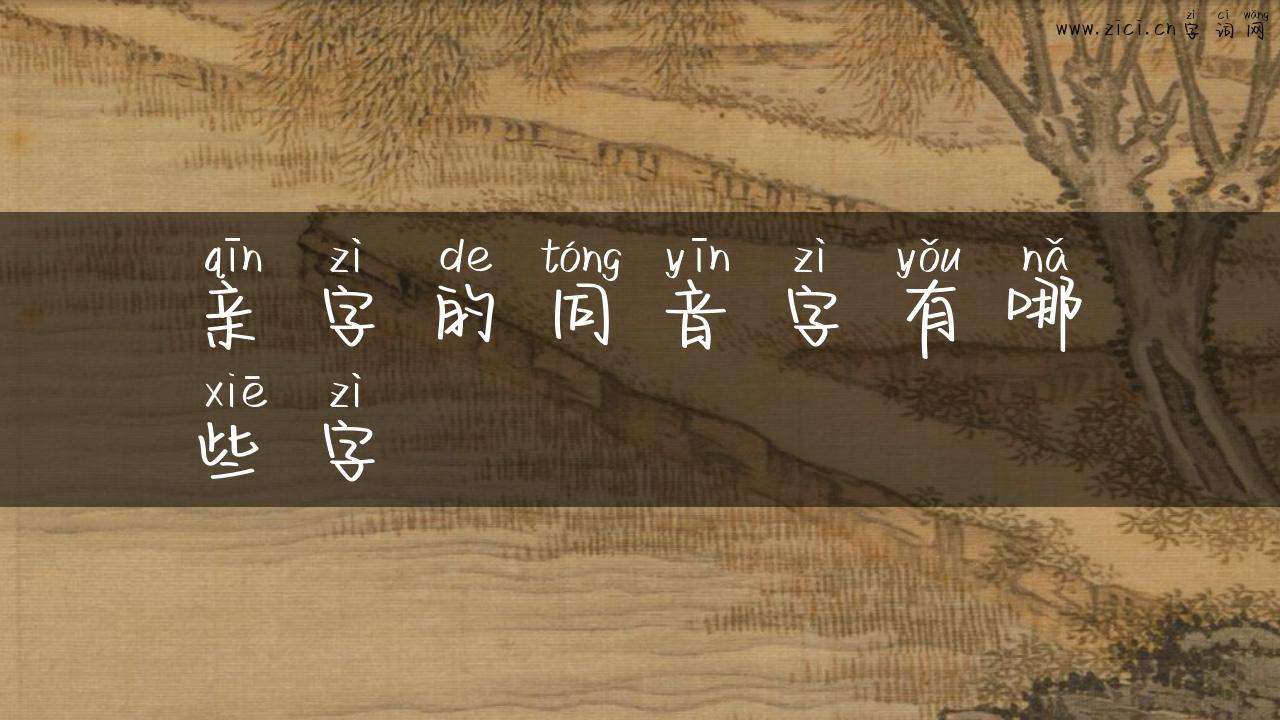 zì cí wǎng
www.zici.cn字词网
qīn zì de tóng yīn zì yǒu nǎ
亲字的同音字有哪
xiē zì
些字